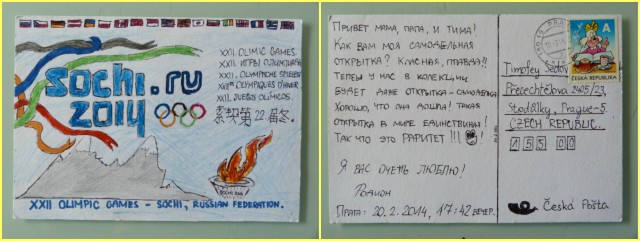 SOCHI.RU
2014
XXII. OLIMIC GAMES.
XXII. ИГРЫ ОЛИМПИЙСКИЕ
XXII. OLYMPISCHE SPIELEN
XXII. JUEGOS OLÍMICOS.
22
SOCHI 2014
XXII OLYMPIC GAMES - SOCHI, RUSSIAN FEDERATION.
ПРИВЕТ МАМА, ПАПА, И ТИМА!
КАК ВАМ МОЯ САМОДЕЛЬНАЯ
ОТКРЫТКА? КЛАСНАЯ, ПРАВДА?!
ТЕПЕРЬ У НАС В КОЛЕКЦИИ
БУДЕТ ДАЖЕ ОТКРЫТКА - САМОДЕЛКА
ХОРОШО, ЧТО ОНА ДОШЛА! ТАКАЯ
ОТКРЫТКА В МИРЕ ЕДИНСТВЕННАЯ!
ТАК ЧТО ЭТО РАРИТЕТ!!!
Я ВАС ОЧЕНЬ ЛЮБЛЮ!
РОДИОН
ПРАГА: 20.2.2014, 17:42 ВЕЧЕР.
A
ČESKÁ REPUBLIKA
Timofey
Přecechtělova 2405/23,
Stodůlky, Prague-5.
CZECH REPUBLIC.
155 00
Česká Pošta